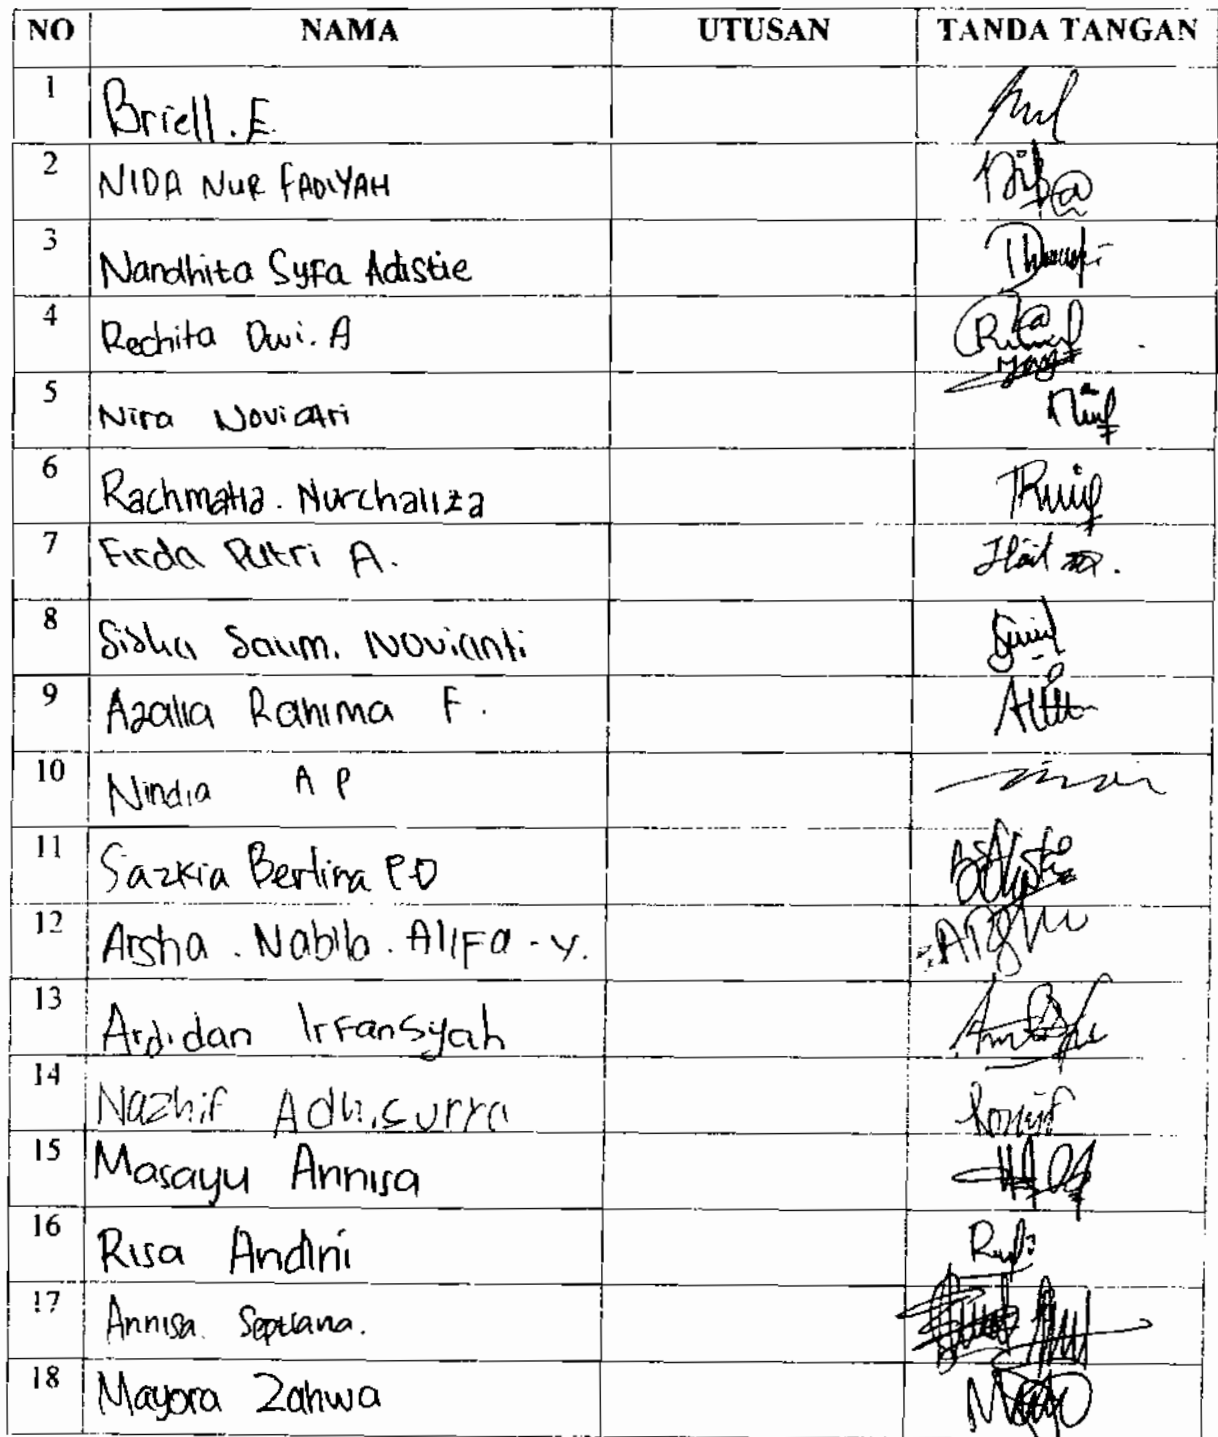 NO NAMA UTUSAN TANDA TANGAN
1 Briell. E.
2 NIDA NUR FADIYAH
3 Nandhita Syfa Adistie
4 Rechita Dwi. A
5 Nira Noviatri
6 Rachmatia. Nurchaliza
7 Firda Putri A.
8 Siska Saum. Novianti
9 Azalia Rahima F.
10 Nindia A P
11 Sazkia Berlina P.D
12 Arsha. Nabila. Alifa - Y.
13 Ardidan Irfansyah
14 Nazhif
15 Masayu Annisa
16 Risa Andini
17 Annisa. Septiana.
18 Mayora Zahwa